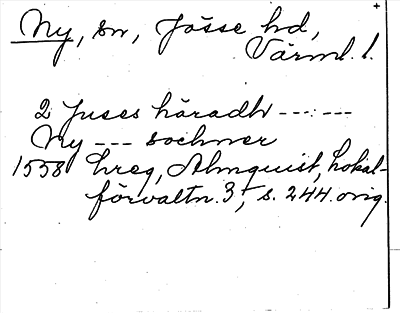 Ny, sn, Jösse hd,
Värml. l.
2 Juses häradh --- ---
Ny --- sochner
1558 hreg, Almquist, Lokal-
förvaltn. 3, s. 244. orig.